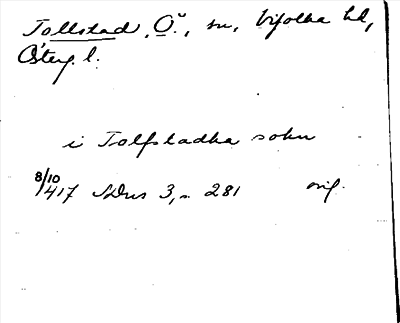 Tollstad, Ö., sn, Vifolka hd,
Österg. l.
i Tolfstadha sokn
8/10 1417 SDns 3, s. 281 orig.